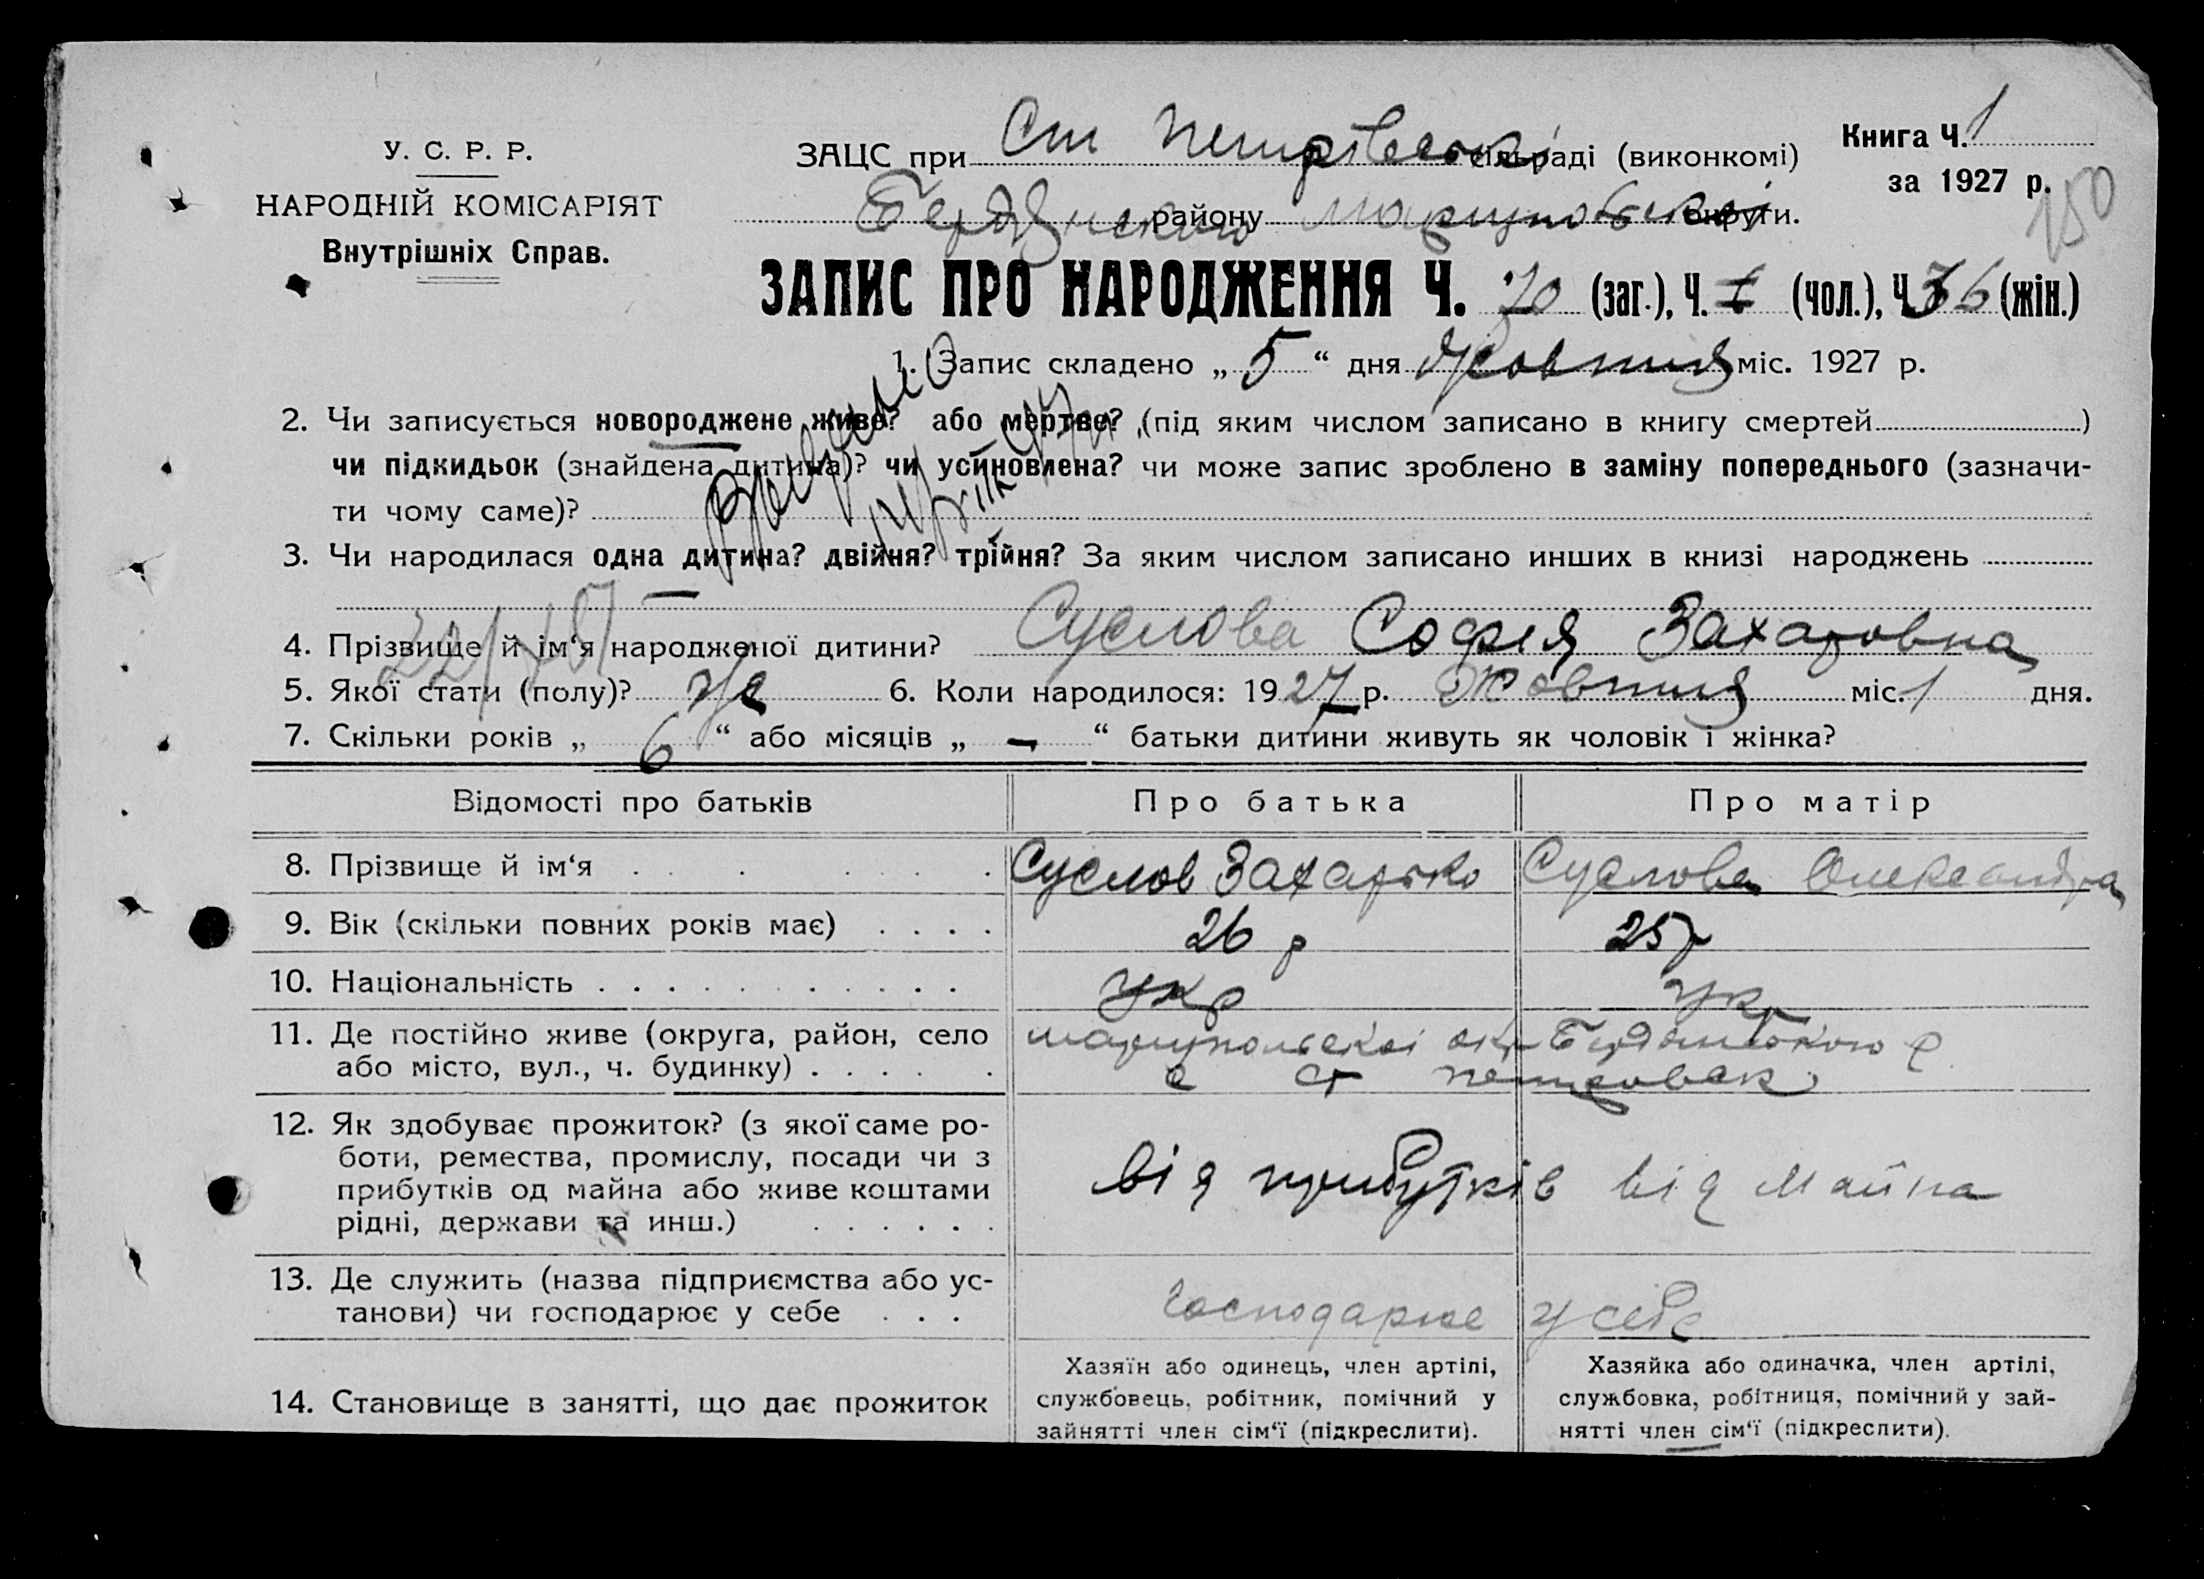 У. С. Р. Р.
НАРОДНІЙ КОМІСАРІЯТ
Внутрішніх Справ.
ЗАЦС при Ст Петрівські сільраді (виконкомі)
Книга Ч. 1
за 1927 р.
150
Бердянського району Маріупольскоі округи.
ЗАПИС ПРО НАРОДЖЕННЯ Ч. 70 (заг.), Ч. (чол.), Ч. 36 (жін.)
1. Запис складено „ 5 “ дня Жовтня міс. 1927 р.
2. Чи записується новороджене живе? або мертве? (під яким числом записано в книгу смертей )
чи підкидьок (знайдена дитина)? чи усиновлена? чи може запис зроблено в заміну попереднього (зазначи-
ти чому саме)?
3. Чи народилася одна дитина? двійня? трійня? За яким числом записано инших в книзі народжень
4. Прізвище й ім‘я народженої дитини? Суслова Софія Захаровна
5. Якої стати (полу)? Же 6. Коли народилося: 1927 р. Жовтня міс. 1 дня.
7. Скільки років „ 6 “ або місяців „ — “ батьки дитини живуть як чоловік і жінка?
Відомості про батьків Про батька Про матір
8. Прізвище й ім‘я Суслов Захарько Суслова Олександра
9. Вік (скільки повних років має) 26 р 25 р
10. Національність укр укр
11. Де постійно живе (округа, район, село Маріупольскоі окр Бердянського р
або місто, вул., ч. будинку) с Ст Петровск
12. Як здобуває прожиток? (з якої саме ро-
боти, ремества, промислу, посади чи з
прибутків од майна або живе коштами від прибутків від майна
рідні, держави та инш.)
13. Де служить (назва підприємства або ус-
танови) чи господарює у себе господарює у себе
14. Становище в занятті, що дає прожиток
Хазяїн або одинець, член артілі,
службовець, робітник, помічний у
зайнятті член сім‘ї (підкреслити).
Хазяйка або одиначка, член артілі,
службовка, робітниця, помічний у зай-
нятті член сім‘ї (підкреслити).